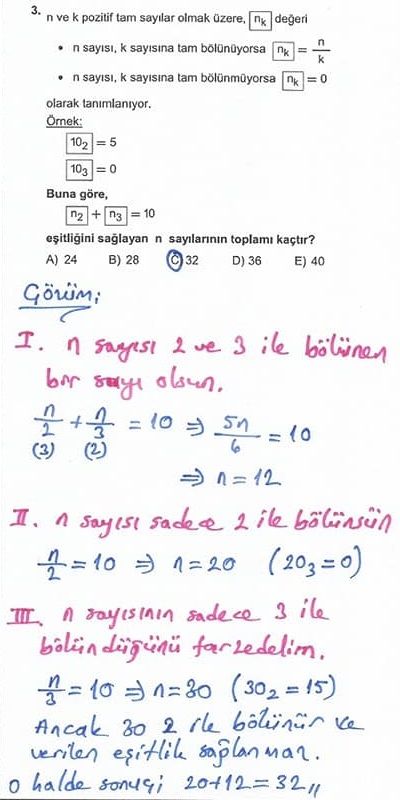 3. n ve k pozitif tam sayılar olmak üzere, nk değeri
• n sayısı, k sayısına tam bölünüyorsa nk = n/k
• n sayısı, k sayısına tam bölünmüyorsa nk = 0
olarak tanımlanıyor.
Örnek:
10₂ = 5
10₃ = 0
Buna göre,
n₂ + n₃ = 10
eşitliğini sağlayan n sayılarının toplamı kaçtır?
A) 24 B) 28 C) 32 D) 36 E) 40
Çözüm;
I. n sayısı 2 ve 3 ile bölünen
bir sayı olsun.
n/2 + n/3 = 10 ⇒ 5n/6 = 10
(3) (2)
⇒ n = 12
II. n sayısı sadece 2 ile bölünsün
n/2 = 10 ⇒ n = 20 (20₃ = 0)
III. n sayısının sadece 3 ile
bölündüğünü farzedelim.
n/3 = 10 ⇒ n = 30 (30₂ = 15)
Ancak 30 2 ile bölünür ve
verilen eşitlik sağlanmaz.
O halde sonuç; 20+12 = 32,,